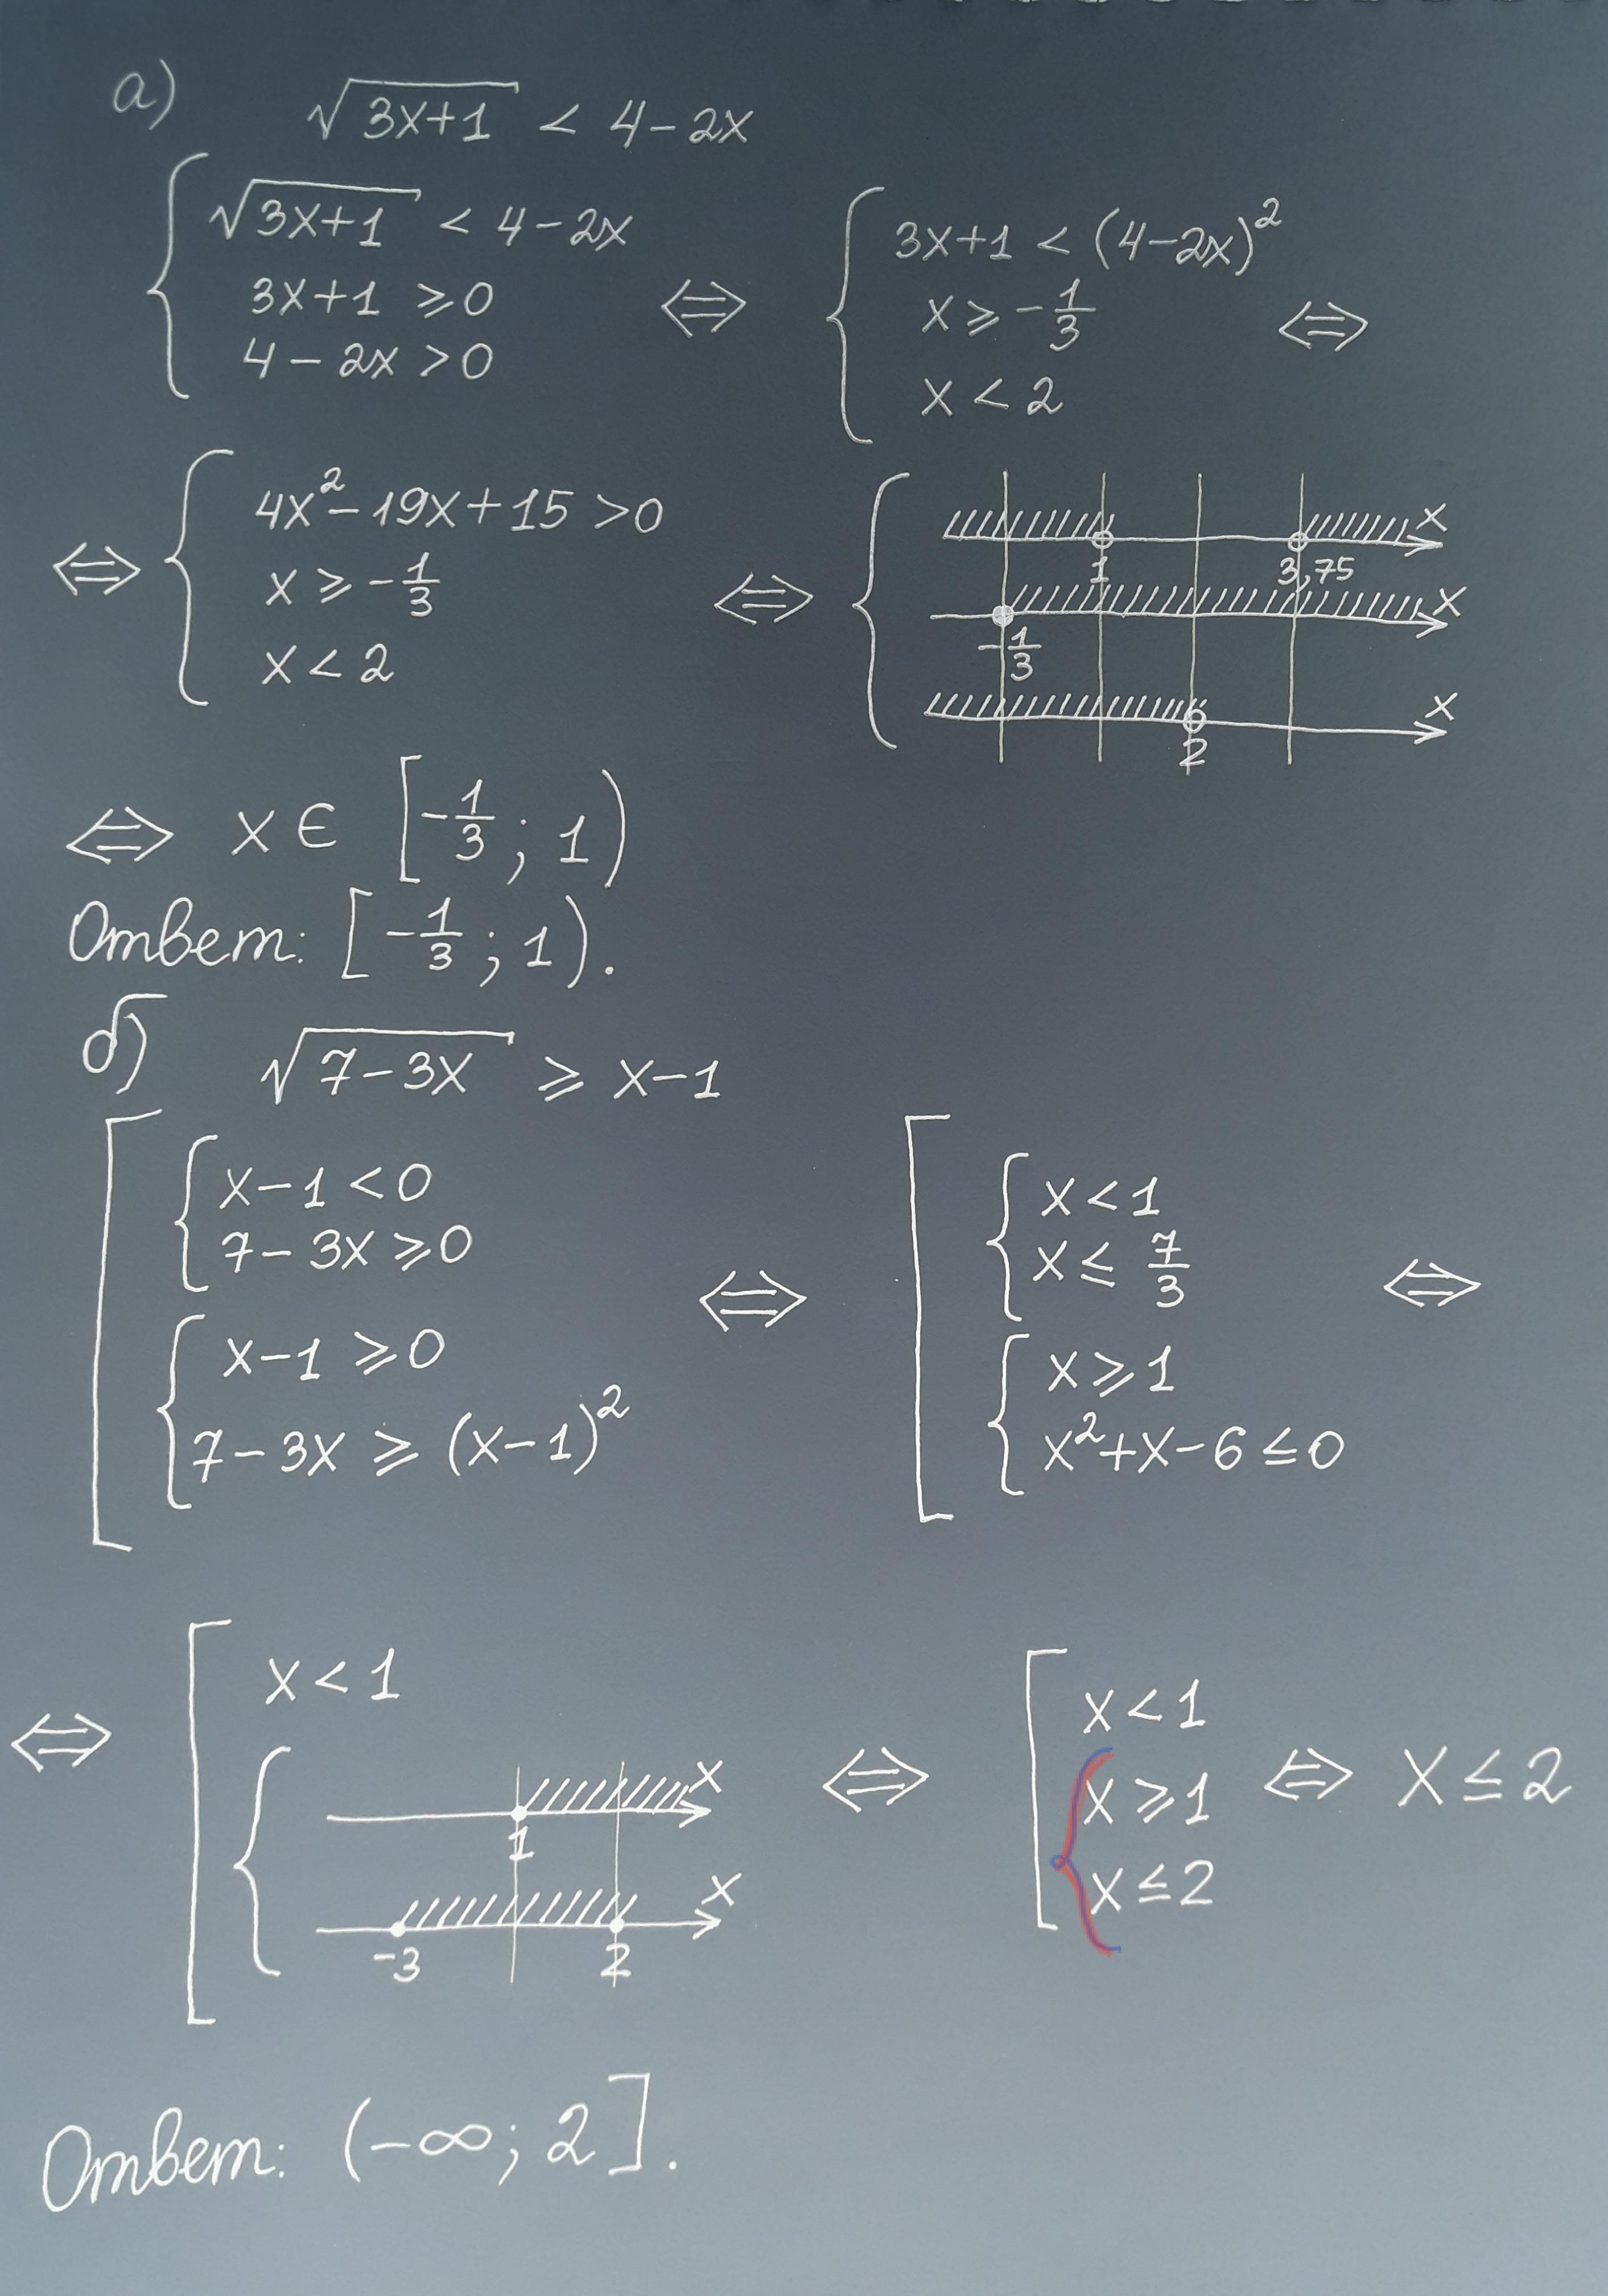 а) √(3x+1) < 4-2x
{ √(3x+1) < 4-2x
3x+1 ⩾ 0
4-2x > 0
⇔
{ 3x+1 < (4-2x)²
x ⩾ -1/3
x < 2
⇔
⇔ { 4x²-19x+15 > 0
x ⩾ -1/3
x < 2
⇔
{ x
1 3,75
x
-1/3
x
2
⇔ x ∈ [-1/3; 1)
Ответ: [-1/3; 1).
б) √(7-3x) ⩾ x-1
[ { x-1 < 0
7-3x ⩾ 0
{ x-1 ⩾ 0
7-3x ⩾ (x-1)²
⇔
[ { x < 1
x ≤ 7/3
{ x ⩾ 1
x²+x-6 ≤ 0
⇔
⇔ [ x < 1
{ x
1
x
-3 2
⇔
[ x < 1
{ x ⩾ 1
x ≤ 2
⇔ x ≤ 2
Ответ: (-∞; 2].